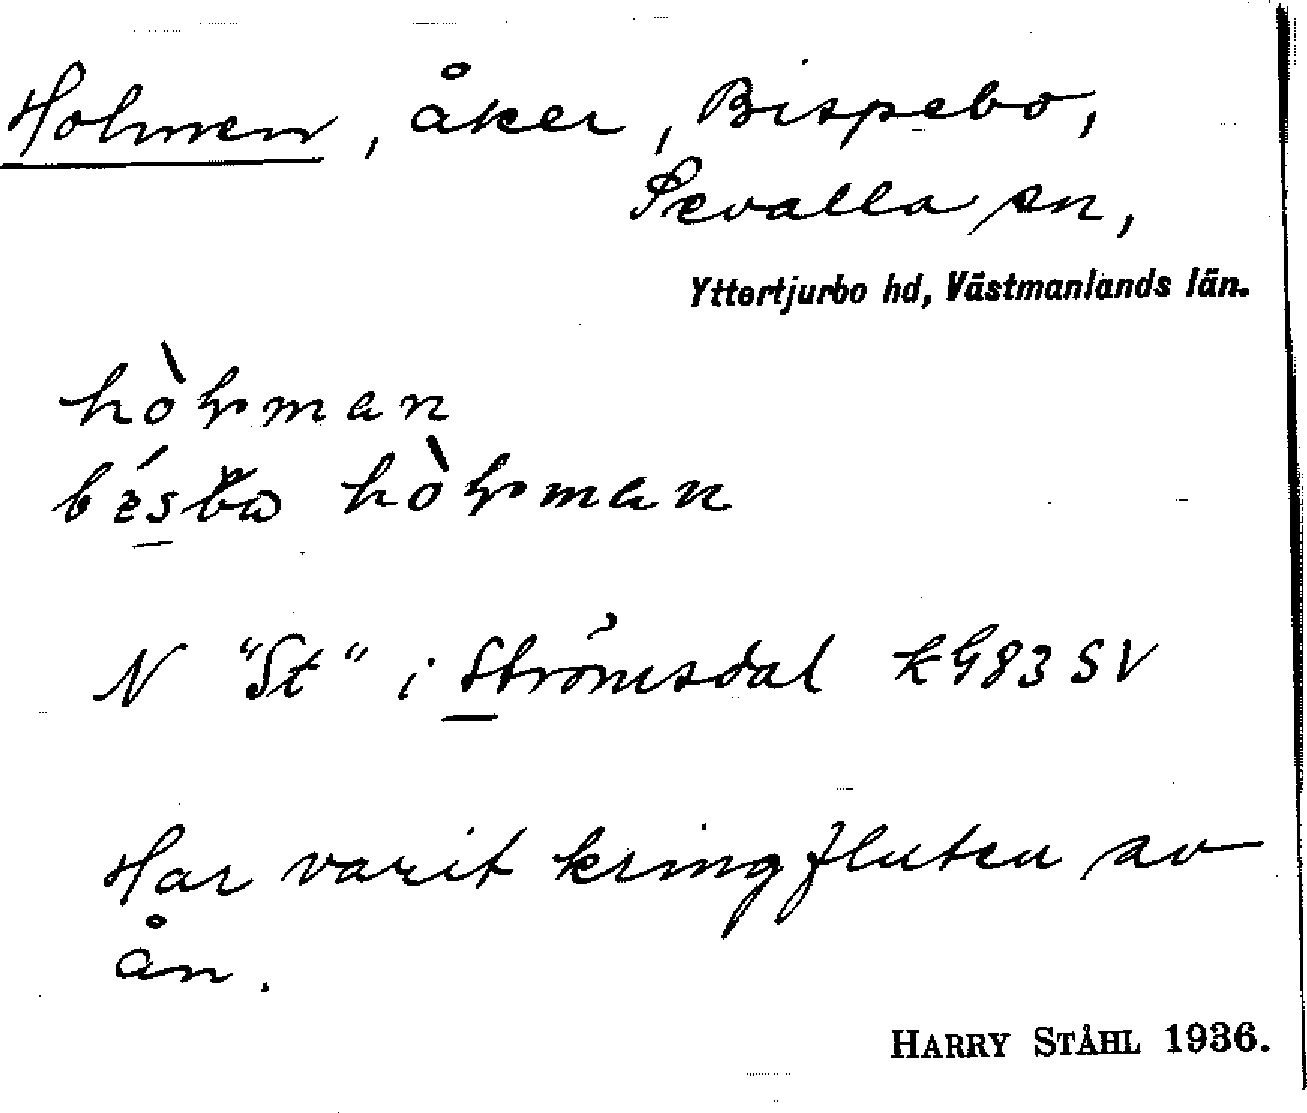 Holmen, åker, Bispebo,
Sevalla sn,
Yttertjurbo hd, Västmanlands län.
hòɫman
hòɫman
N "St" i Strömsdal kG83 SV
Har varit kringfluten av
ån.
HARRY STÅHL 1936.